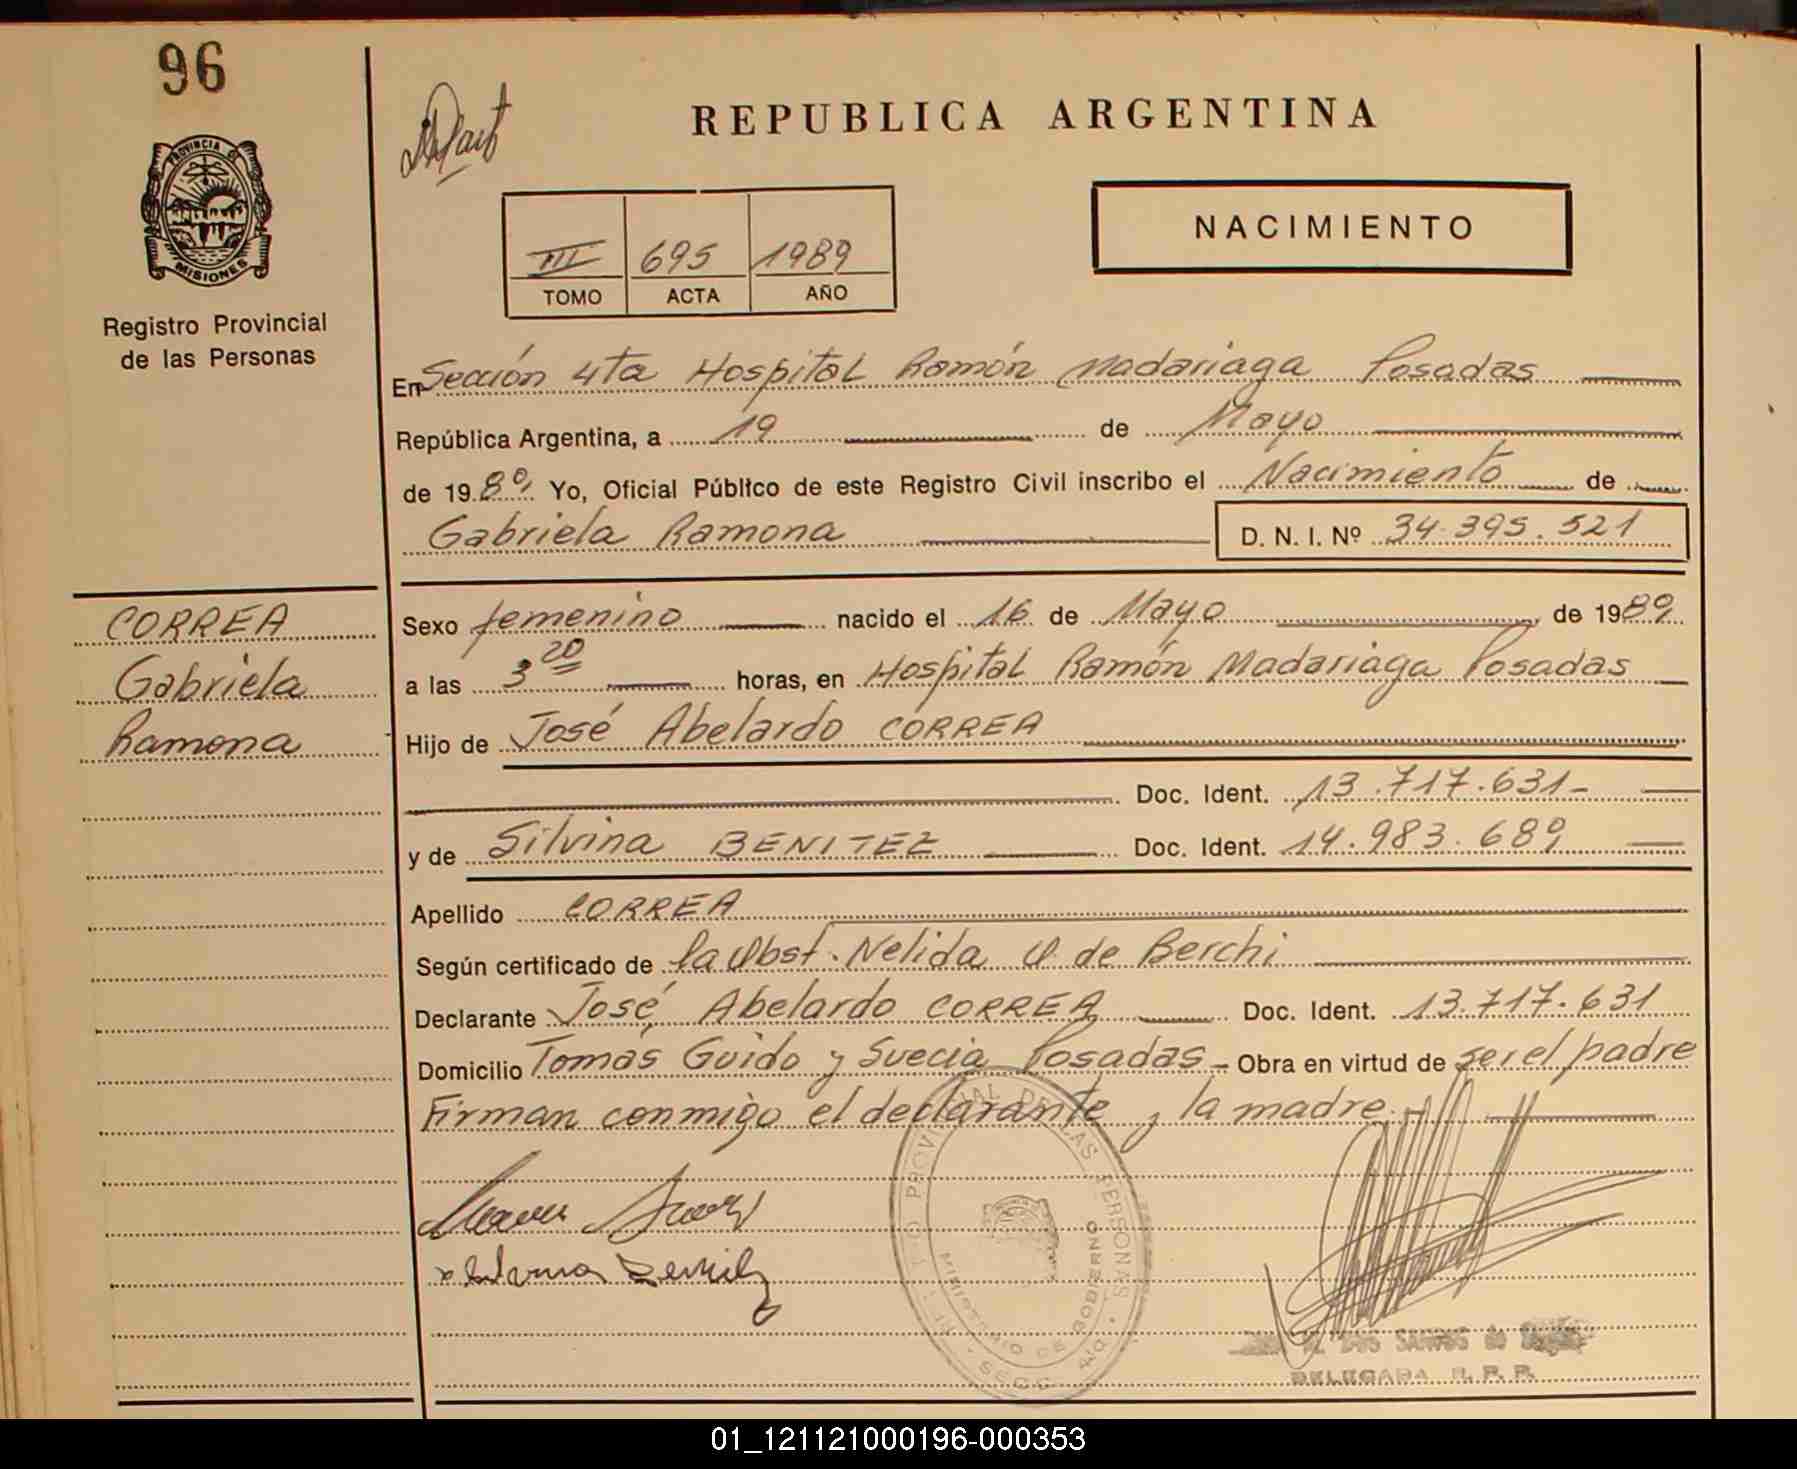 96
REPUBLICA ARGENTINA
PROVINCIA DE
MISIONES
Registro Provincial
de las Personas
NACIMIENTO
III 695 1989
TOMO ACTA AÑO
En Sección 4ta Hospital Ramón Madariaga Posadas
República Argentina, a 19 de Mayo
de 1989 Yo, Oficial Público de este Registro Civil inscribo el Nacimiento de
Gabriela Ramona D. N. I. Nº 34.395.521
CORREA
Gabriela
Ramona
Sexo femenino nacido el 16 de Mayo de 1989
a las 3 20 horas, en Hospital Ramón Madariaga Posadas
Hijo de José Abelardo CORREA
Doc. Ident. 13.717.631-
y de Silvina BENITEZ Doc. Ident. 14.983.689
Apellido CORREA
Según certificado de la Obst. Nelida O. de Berchi
Declarante José Abelardo CORREA Doc. Ident. 13.717.631
Domicilio Tomás Guido y Suecia Posadas - Obra en virtud de ser el padre
Firman conmigo el declarante y la madre.-
PROVINCIAL DE LAS PERSONAS
MINISTERIO DE GOBIERNO
SECC. 4ta
DOS SANTOS de
DELEGADA R. P. P.
01_121121000196-000353